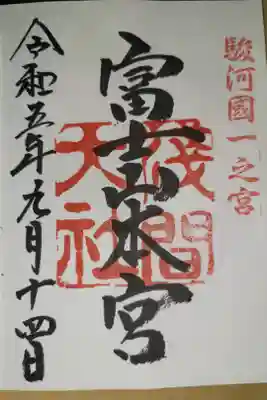 駿河國一之宮
富士山本宮
淺間大社
令和五年九月十四日